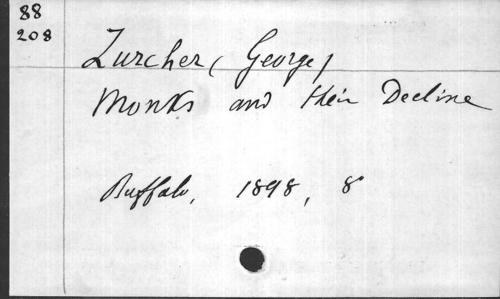 88
208
Zurcher (George)
Monks and their Decline
Buffalo, 1898, 8°